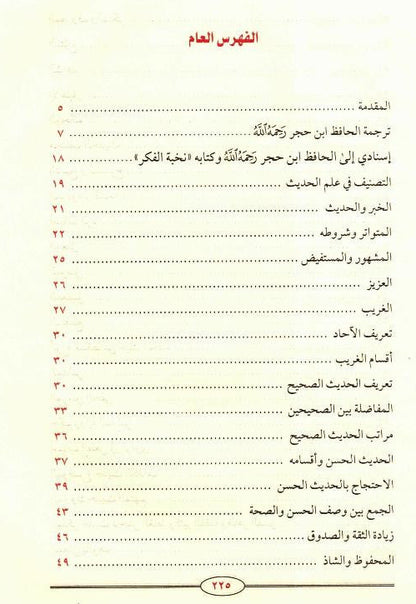 الفهرس العام
المقدمة ................ ٥
ترجمة الحافظ ابن حجر رَحِمَهُ ٱللَّهُ ................ ٧
إسنادي إلى الحافظ ابن حجر رَحِمَهُ ٱللَّهُ وكتابه «نخبة الفكر» ................ ١٨
التصنيف في علم الحديث ................ ١٩
الخبر والحديث ................ ٢١
المتواتر وشروطه ................ ٢٢
المشهور والمستفيض ................ ٢٥
العزيز ................ ٢٦
الغريب ................ ٢٧
تعريف الآحاد ................ ٣٠
أقسام الغريب ................ ٣٠
تعريف الحديث الصحيح ................ ٣٠
المفاضلة بين الصحيحين ................ ٣٣
مراتب الحديث الصحيح ................ ٣٦
الحديث الحسن وأقسامه ................ ٣٧
الاحتجاج بالحديث الحسن ................ ٣٩
الجمع بين وصف الحسن والصحة ................ ٤٣
زيادة الثقة والصدوق ................ ٤٦
المحفوظ والشاذ ................ ٤٩
٢٢٥